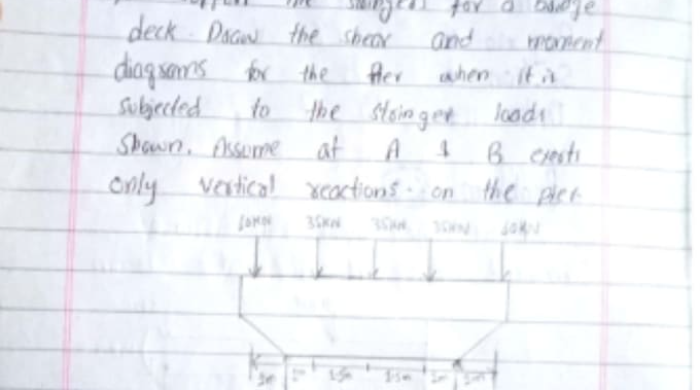 the stringers for a bridge
deck. Draw the shear and moment
diagrams for the Pier when it is
subjected to the stringer loads
Shown. Assume at A & B exerts
only vertical reactions on the pier
60KN 35KN 35KN 35KN 60KN
1m 1m 1.5m 1.5m 1m 1m